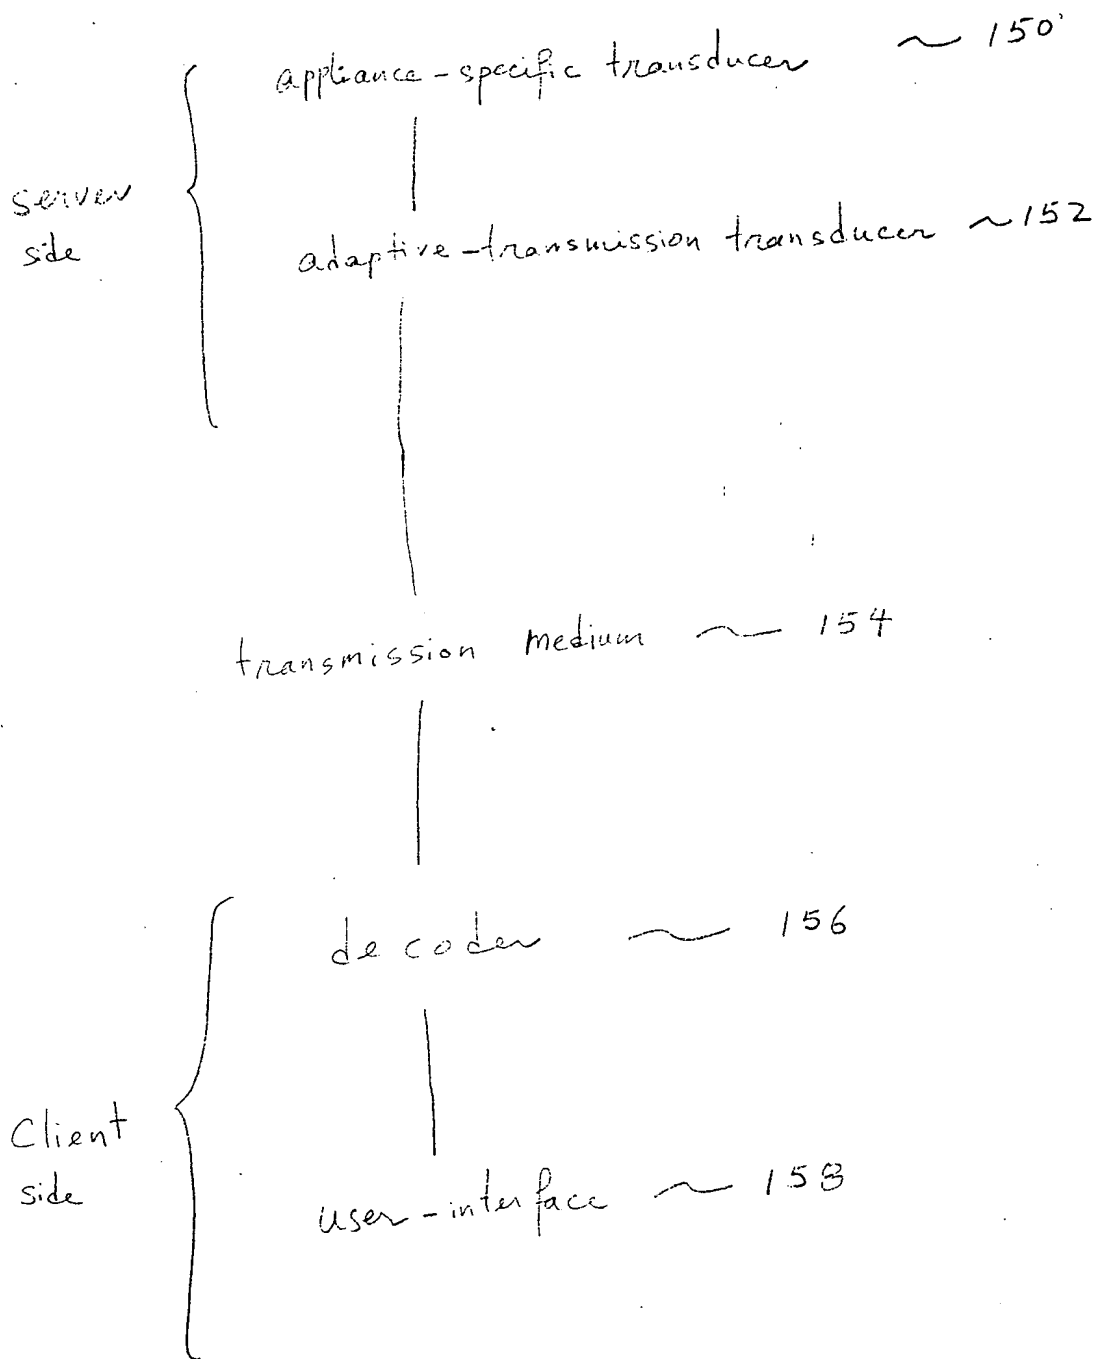 appliance-specific transducer ~ 150
server
side
adaptive-transmission transducer ~152
transmission medium ~ 154
decoder ~ 156
Client
side
user-interface ~ 158